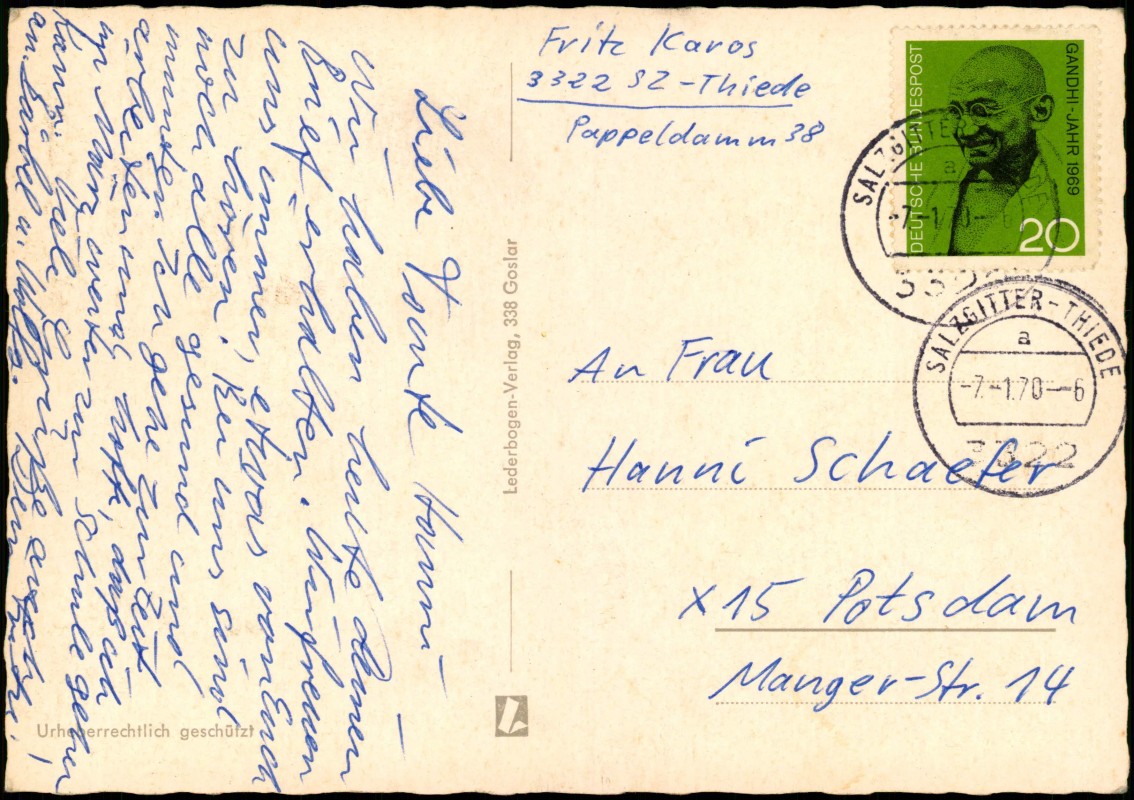 Fritz Karos
3322 SZ-Thiede
Pappeldamm 38
DEUTSCHE BUNDESPOST
GANDHI-JAHR 1969
20
SALZGITTER
a
-7.-1.70--6
332
SALZGITTER-THIEDE
a
-7.-1.70--6
3322
An Frau
Hanni Schaefer
X15 Potsdam
Manger-Str. 14
Lederbogen-Verlag, 338 Goslar
Urheberrechtlich geschützt
Liebe Tante Hanni –
Wir haben heute Deinen
Brief erhalten. Wir freuen
uns immer, etwas von Euch
zu hören. Bei uns sind
noch alle gesund und
munter. Ich gehe zur Zeit
arbeiten und hoffe, daß ich
im März weiter zur Schule gehen
kann. Viele Grüße auch
an Bärbel u. Dein Fritz.